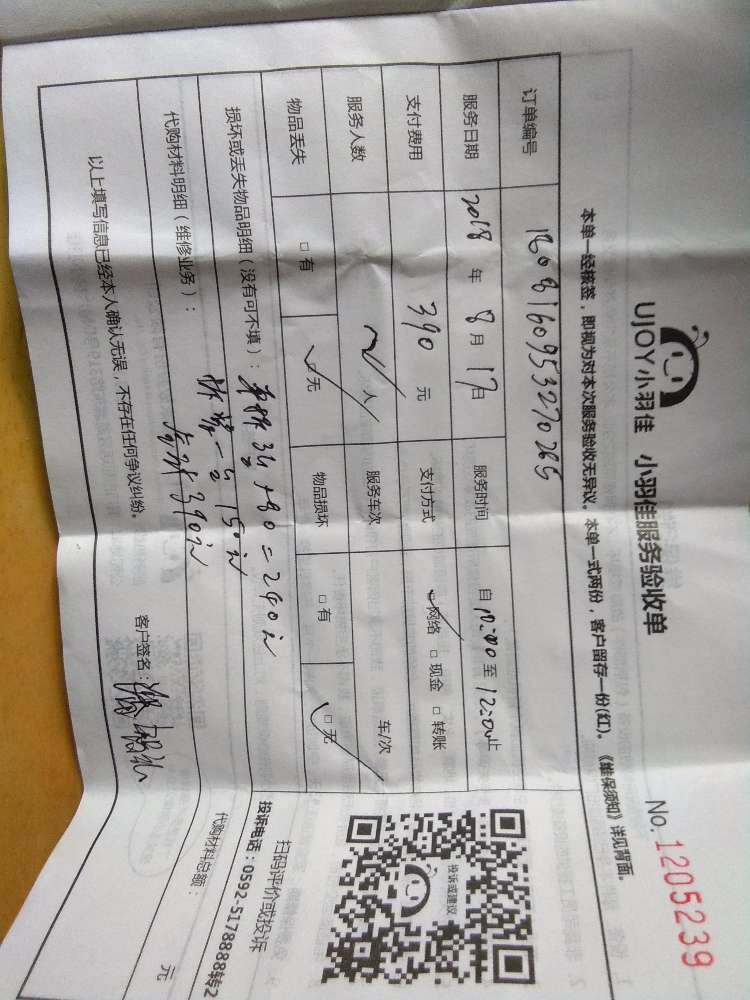 UJOY小羽佳 小羽佳服务验收单
No. 1205239
本单一经核签，即视为对本次服务验收无异议。本单一式两份，客户留存一份(红)。《维保须知》详见背面。
订单编号
服务日期 2018 年 8 月 17 日 服务时间 自 至 12:00 止
支付费用 390 元 支付方式 ☑网络 □现金 □转账
服务人数 人 服务车次 车/次
物品丢失 □有 ☑无 物品损坏 □有 ☑无
损坏或丢失物品明细（没有可不填）： 80=240元
150元
代购材料明细（维修业务）： 390元
代购材料总额： 元
以上填写信息已经本人确认无误，不存在任何争议纠纷。 客户签名：
投诉或建议
扫码评价或投诉
投诉电话：0592-5178888转2